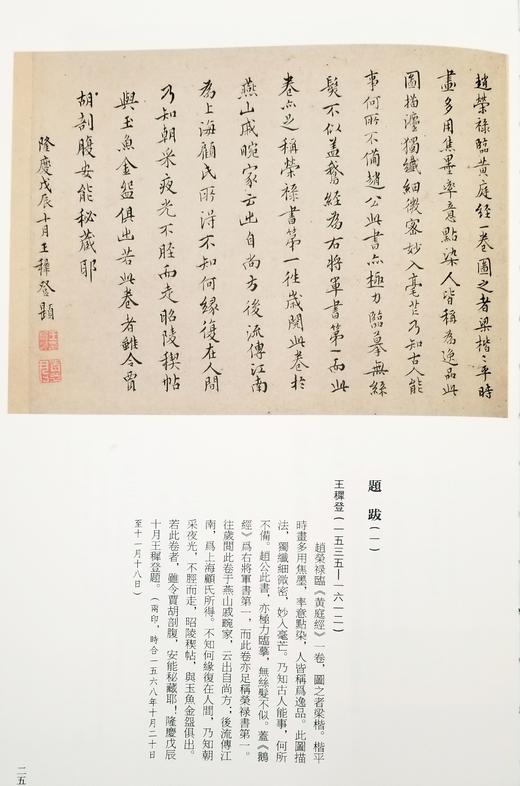 趙榮祿臨黃庭經一卷圖之者梁楷〻平時
畫多用焦墨率意點染人皆稱為逸品此
圖描灋獨纖細微密妙入毫芒乃知古人能
事何所不備趙公此書亦極力臨摹無絲
髮不似蓋鵞經為右將軍書第一而此
卷亦足稱榮祿書第一往歲閱此卷於
燕山戚畹家云出自尚方後流傳江南
為上海顧氏所得不知何緣復在人間
乃知朝采夜光不脛而走昭陵稧帖
與玉魚金盌俱出若此卷者雖令賈
胡剖腹安能秘藏耶
隆慶戊辰十月王穉登題
題跋(一)
王穉登(一五三五—一六一二)
趙榮禄臨《黃庭經》一卷,圖之者梁楷。楷平
時畫多用焦墨,率意點染,人皆稱爲逸品。此圖描
法,獨纖細微密,妙入毫芒。乃知古人能事,何所
不備。趙公此書,亦極力臨摹,無絲髮不似。蓋《鵝
經》爲右將軍書第一,而此卷亦足稱榮禄書第一。
往歲閲此卷于燕山戚畹家,云出自尚方;後流傳江
南,爲上海顧氏所得。不知何緣復在人間,乃知朝
采夜光,不脛而走,昭陵稧帖,與玉魚金盌俱出。
若此卷者,雖令賈胡剖腹,安能秘藏耶!隆慶戊辰
十月王穉登題。(兩印,時合一五六八年十月二十日
至十一月十八日)
二五